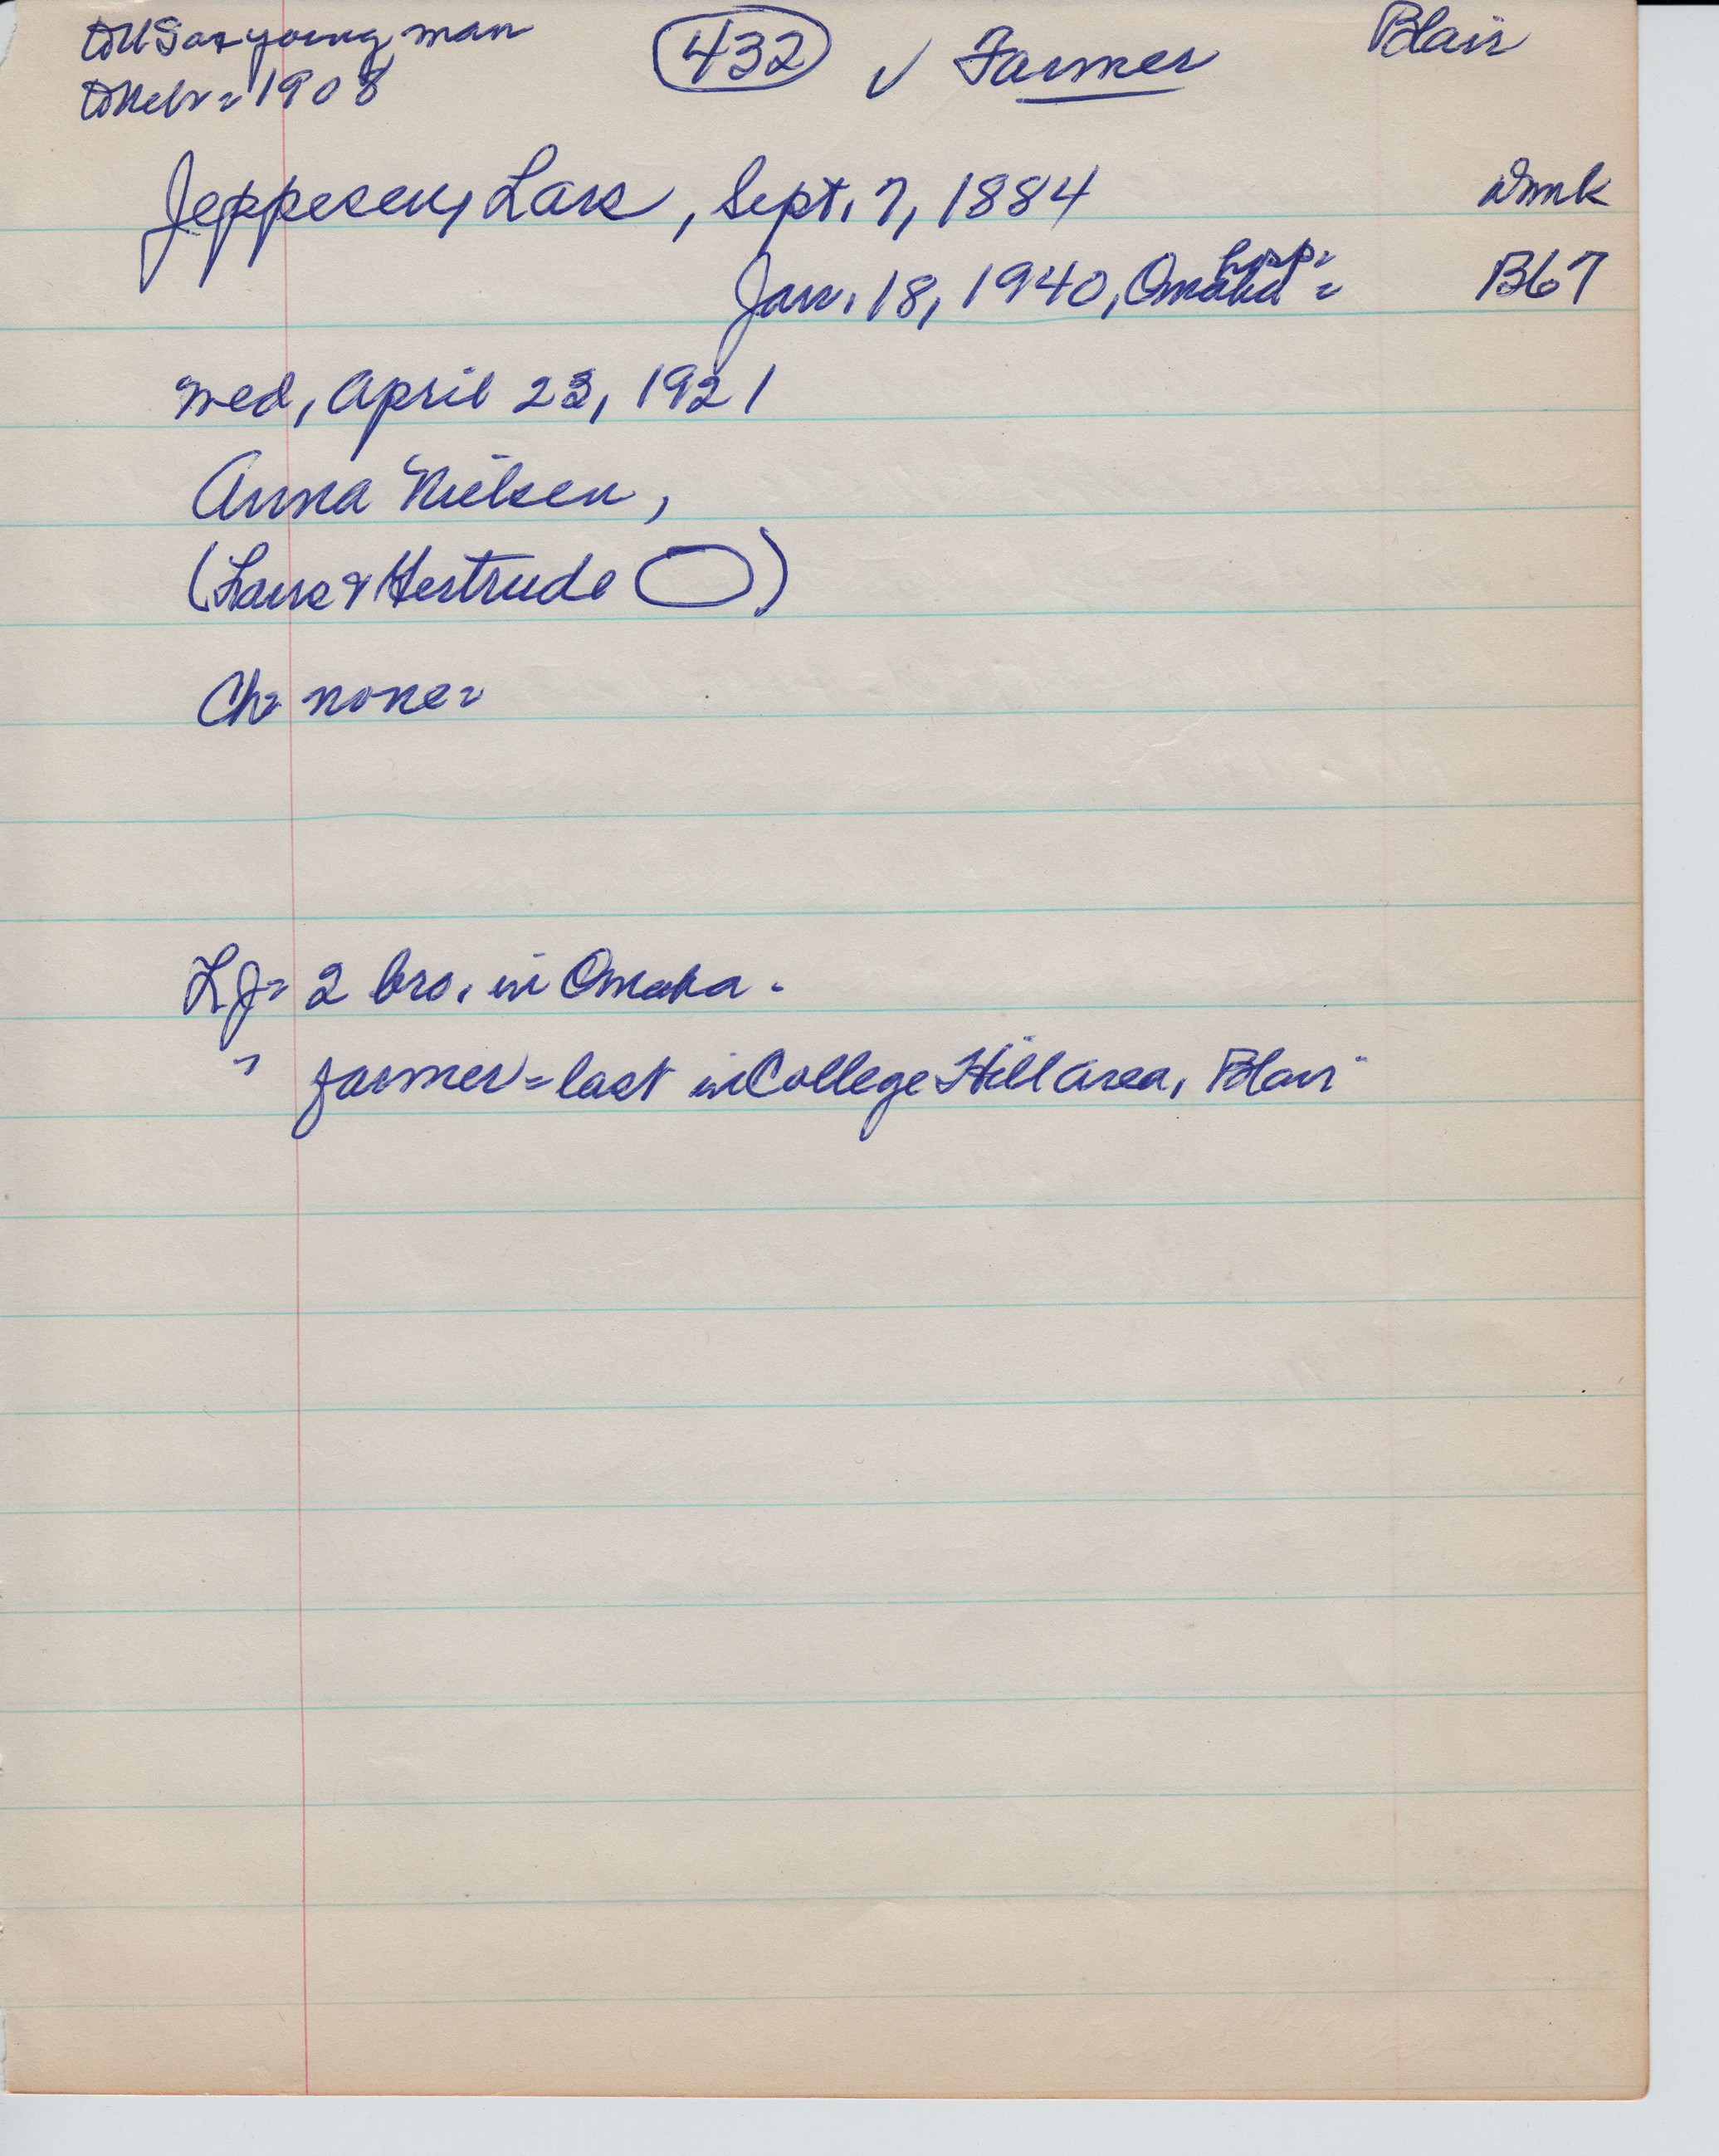 to USa = young man
to Nebr = 1908
432 ✓ Farmer
Blair
Jeppesen, Lars, Sept. 7, 1884
Dmk
Jan. 18, 1940, Omaha hosp =
B67
Med, April 23, 1921
Anna Nielsen,
(Lars & Gertrude)
Ch = none =
LJ = 2 bro. in Omaha.
" farmer = last in College Hill area, Blair